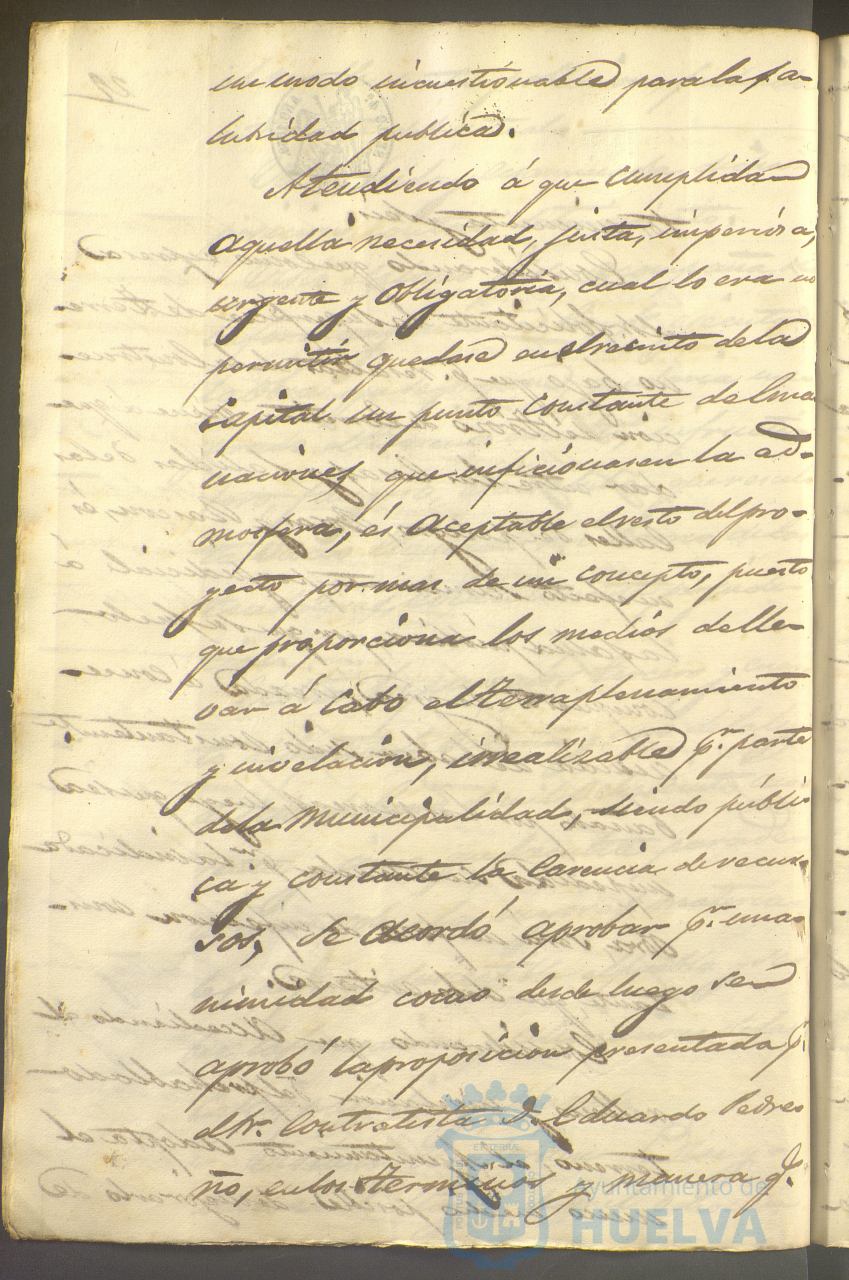 un modo incuestionable para la sa-
lubridad publica.
Atendiendo á que cumplida
aquella necesidad, justa, imperiosa,
urgente y obligatoria, cual lo era no
permitir quedase en el recinto de la
capital un punto constante de ema
naciones que inficionasen la ad-
mosfera, és aceptable el resto del pro-
yecto por mas de un concepto, puesto
que proporciona los medios de lle-
var á cabo el terraplenamiento
y nivelacion, irrealizable pr. parte
de la Municipalidad, siendo públi
ca y constante la carencia de recur-
sos, se acordó aprobar pr. una-
nimidad como desde luego se
aprobó la proposicion presentada p.
el Sr. Contratista D. Eduardo Pedre
ño, en los terminos y manera q.
Ayuntamiento de
HUELVA